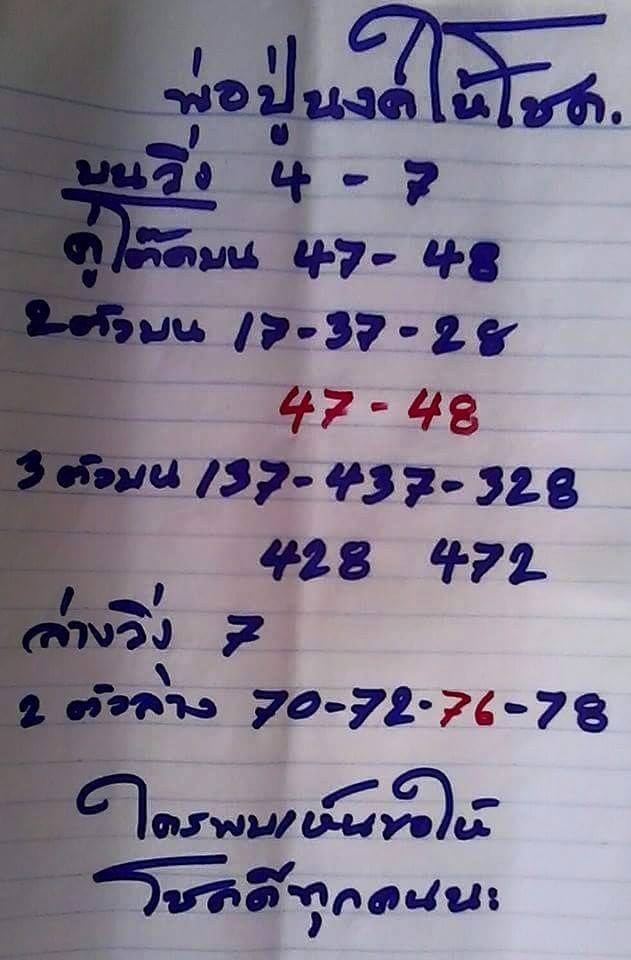 พ่อปู่นงค์ให้โชค.
บนวิ่ง 4 - 7
คู่โต๊ดบน 47 - 48
2 ตัวบน 17 - 37 - 28
47 - 48
3 ตัวบน 137 - 437 - 328
428 472
ล่างวิ่ง 7
2 ตัวล่าง 70 - 72 - 76 - 78
ใครพบเห็นขอให้
โชคดีทุกคนนะ